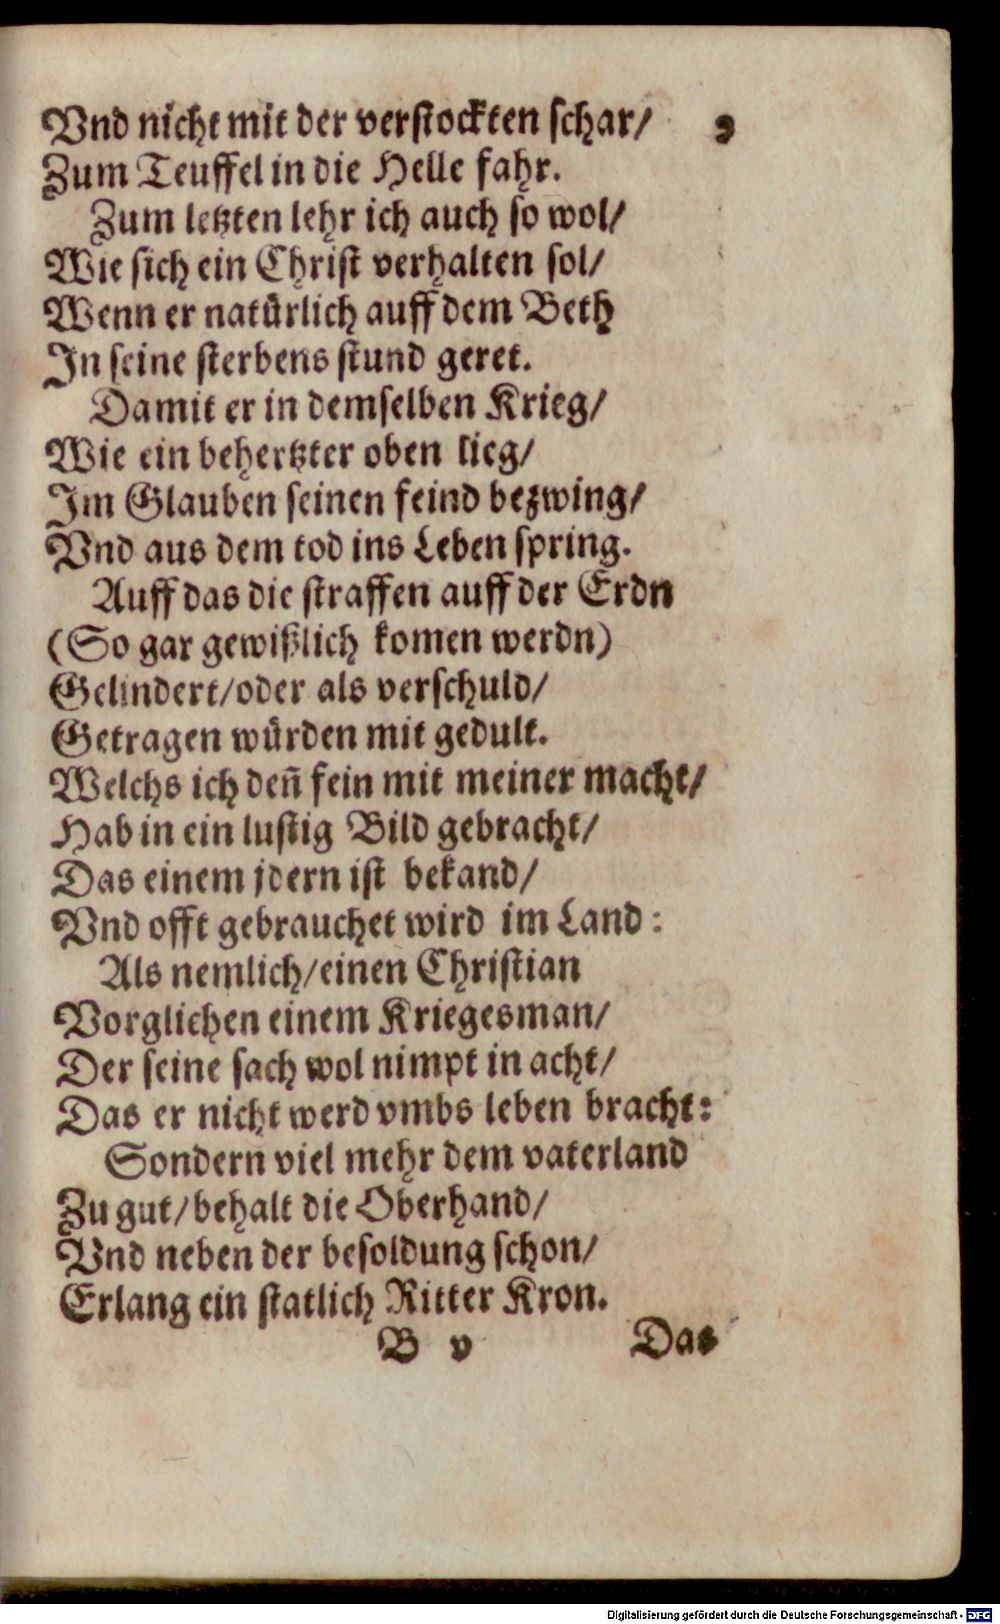 Vnd nicht mit der verstockten schar/ 9
Zum Teuffel in die Helle fahr.
Zum letzten lehr ich auch so wol/
Wie sich ein Christ verhalten sol/
Wenn er natürlich auff dem Beth
In seine sterbens stund geret.
Damit er in demselben Krieg/
Wie ein behertzter oben lieg/
Im Glauben seinen feind bezwing/
Vnd aus dem tod ins Leben spring.
Auff das die straffen auff der Erdn
(So gar gewißlich komen werdn)
Gelindert/oder als verschuld/
Getragen würden mit gedult.
Welchs ich deñ fein mit meiner macht/
Hab in ein lustig Bild gebracht/
Das einem jdern ist bekand/
Vnd offt gebrauchet wird im Land:
Als nemlich/einen Christian
Vorglichen einem Kriegesman/
Der seine sach wol nimpt in acht/
Das er nicht werd vmbs leben bracht:
Sondern viel mehr dem vaterland
Zu gut/behalt die Oberhand/
Vnd neben der besoldung schon/
Erlang ein statlich Ritter Kron.
B v Das
Digitalisierung gefördert durch die Deutsche Forschungsgemeinschaft - DFG